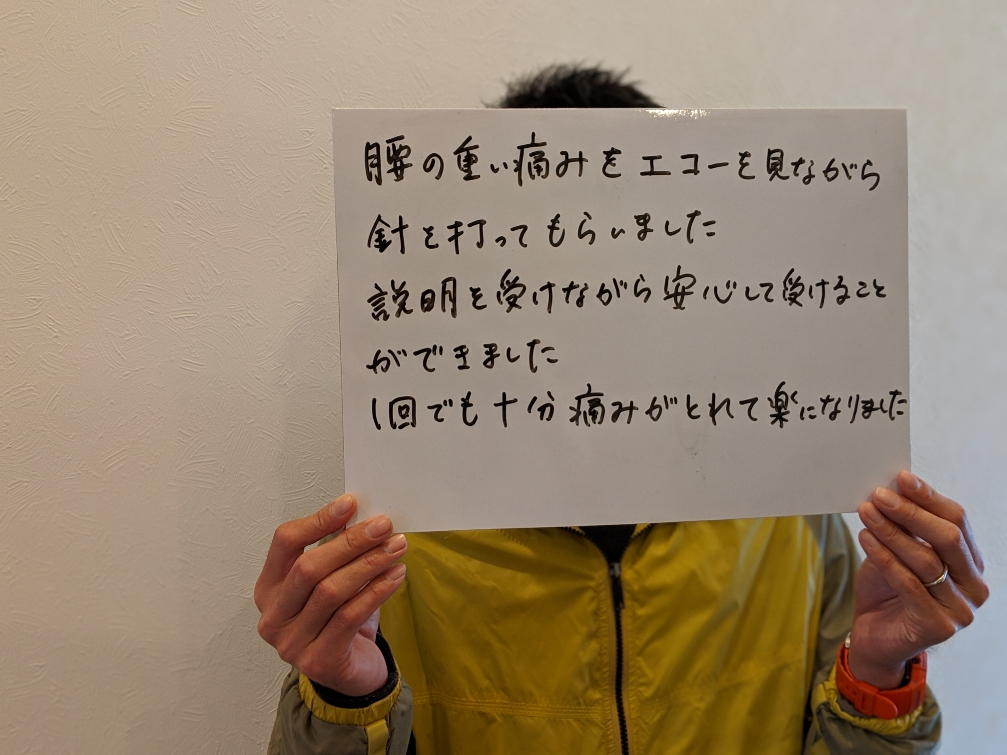 腰の重い痛みをエコーを見ながら
針を打ってもらいました
説明を受けながら安心して受けること
ができました
1回でも十分痛みがとれて楽になりました